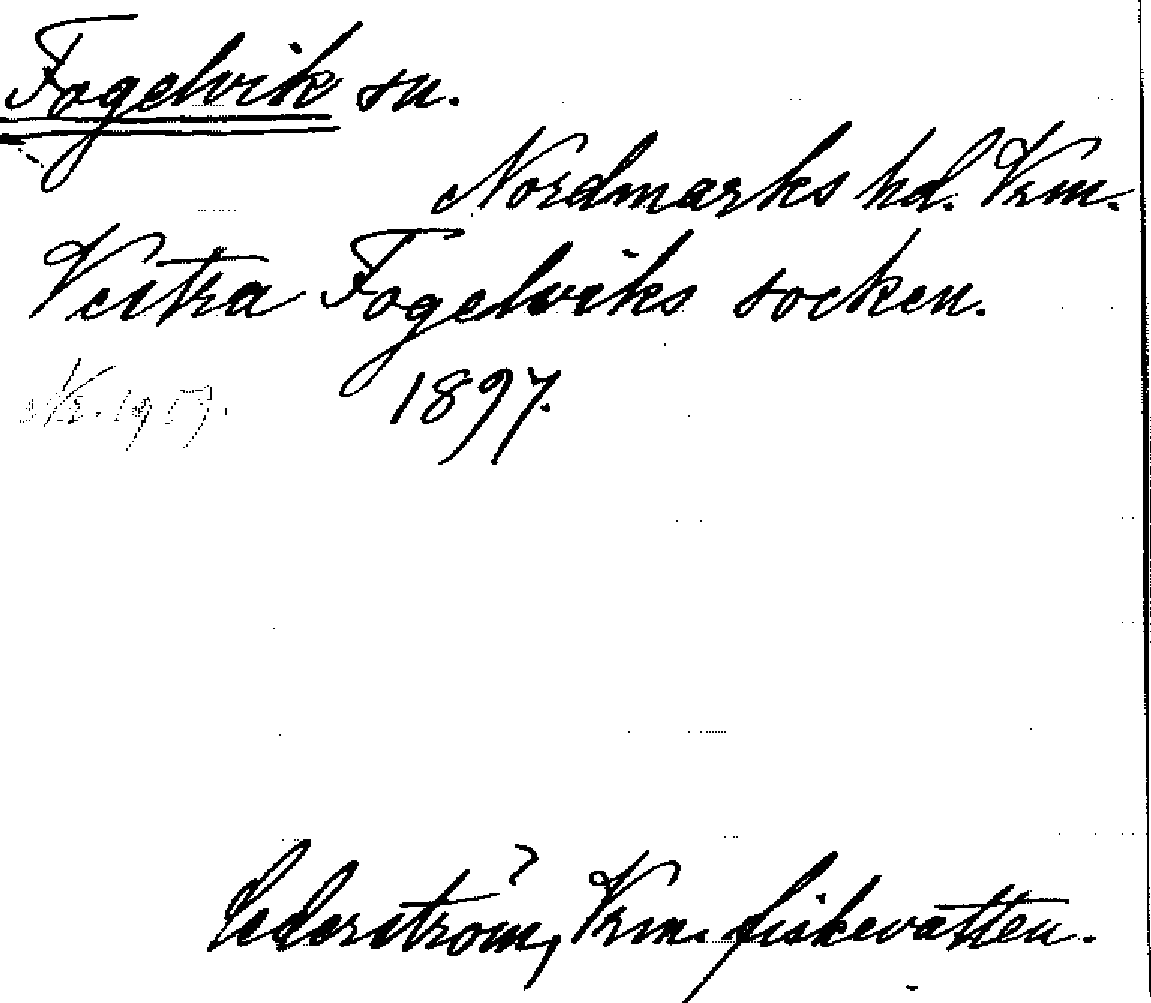 Fogelvik sn.
Nordmarks hd. Vrm.
Vestra Fogelviks socken.
1897.
Cederström, Vrm. fiskevatten.